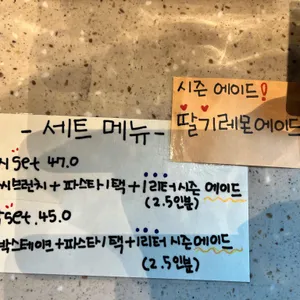 시즌 에이드!
딸기레몬에이드
- 세트 메뉴 -
set 47.0
브런치 + 파스타 1택 + 1리터 시즌 에이드
(2.5인분)
set .45.0
박스테이크 + 파스타 1택 + 1리터 시즌 에이드
(2.5인분)